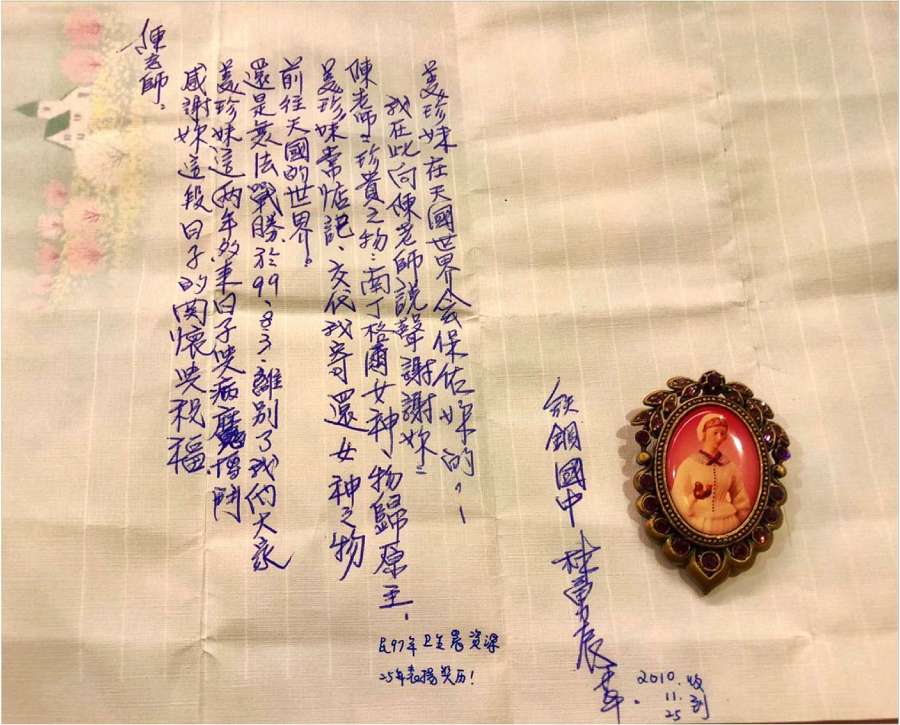 陳老師:
感謝妳這段日子的関懷與祝福.
美珍妹這兩年多來日子與病魔搏鬥
還是無法戰勝於99、8.3.離別了我们大家
前往天國的世界。
美珍妹常惦記、交代我寄還女神之物
陳老師:珍貴之物:南丁格爾女神物歸原主.
我在此向陳老師說聲謝謝妳:
美珍妹在天國世界会保佑妳的,!
鋼國中 杜勇辰
民97年卫生署資深
25年表揚奖历!
2010.
11.
25
收到